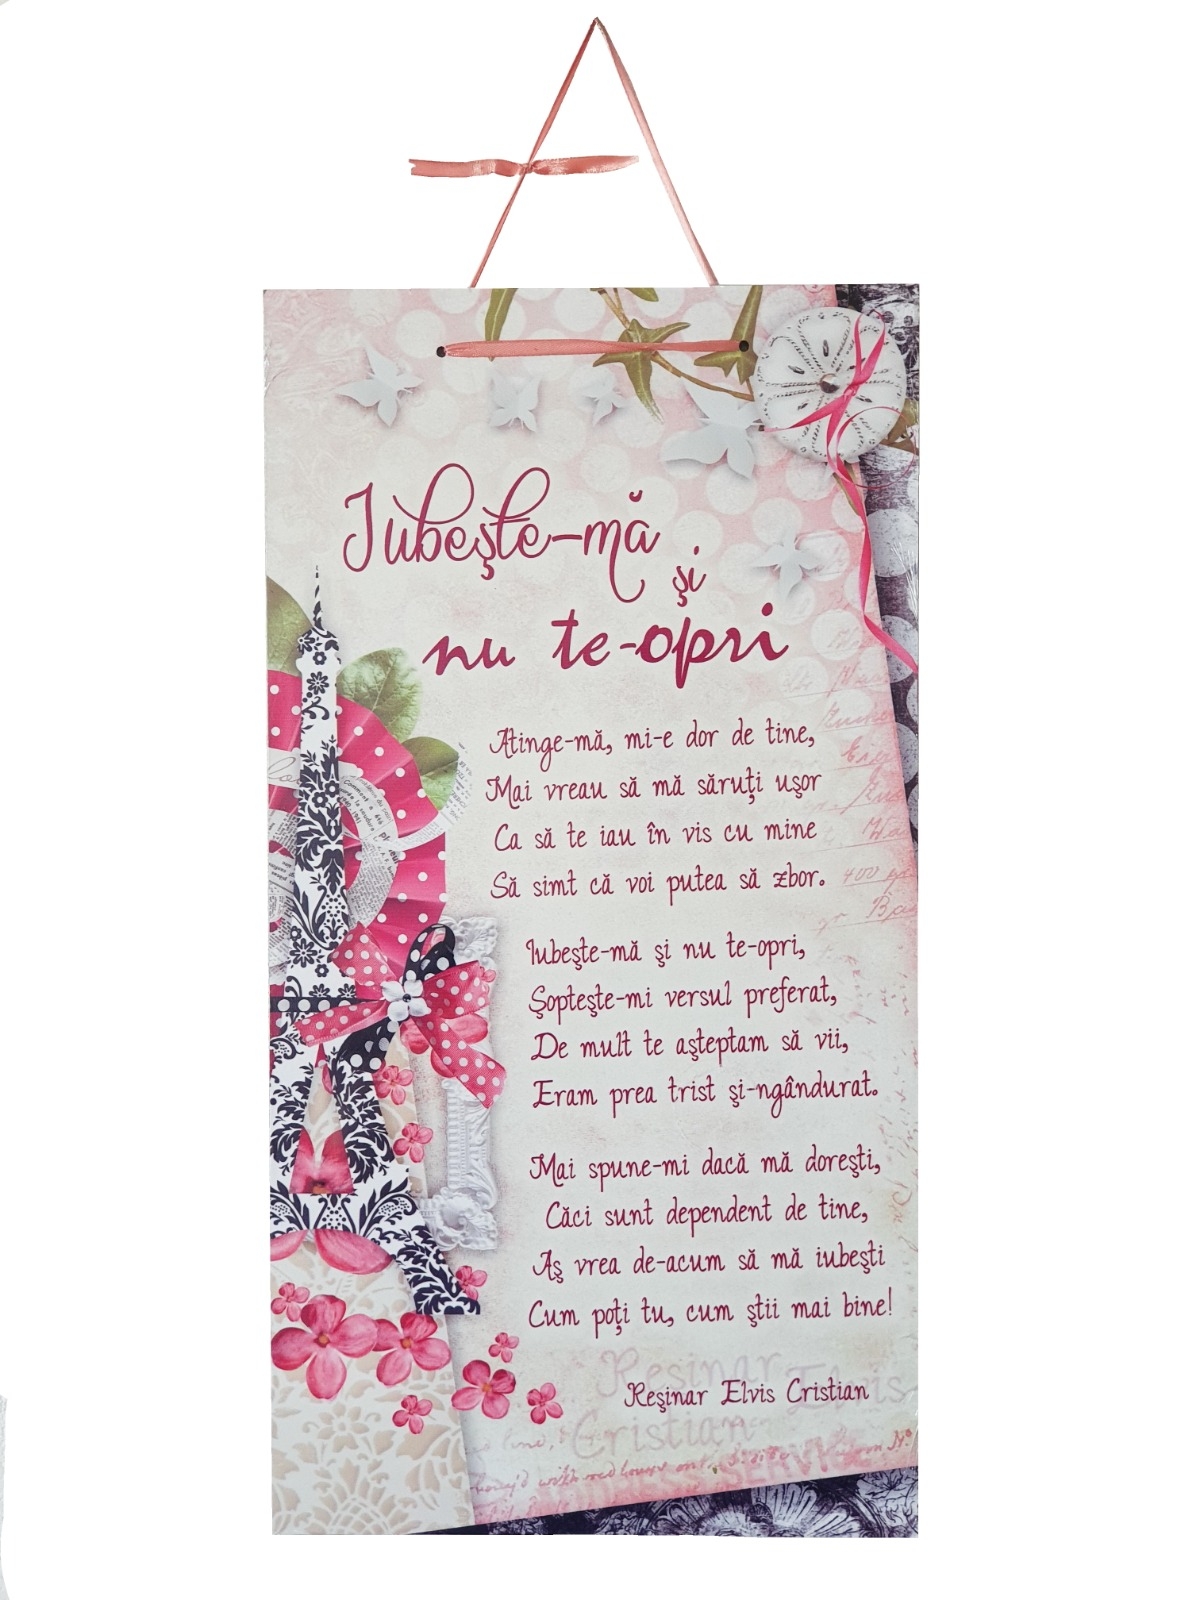 Iubeşte-mă
şi
nu te-opri
Atinge-mă, mi-e dor de tine,
Mai vreau să mă săruţi uşor
Ca să te iau în vis cu mine
Să simt că voi putea să zbor.
Iubeşte-mă şi nu te-opri,
Şopteşte-mi versul preferat,
De mult te aşteptam să vii,
Eram prea trist şi-ngândurat.
Mai spune-mi dacă mă doreşti,
Căci sunt dependent de tine,
Aş vrea de-acum să mă iubeşti
Cum poţi tu, cum ştii mai bine!
Reşinar Elvis
Cristian
Reşinar Elvis Cristian